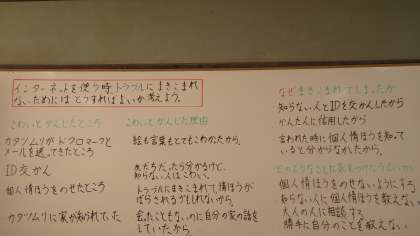 インターネットを使う時トラブルにまきこまれ
ないためにはどうすればよいか考えよう。
こわいとかんじたところ
カタツムリがドクロマークと
メールを送ってきたところ
ID交かん
個人情ほうをのせたところ
カタツムリに家が知られていた
こわいとかんじた理由
絵も言葉もとてもこわかったから。
友だちだったら分かるけど、
知らない人はこわい。
トラブルにまきこまれて情ほうが
ばらされるかもしれないから。
会ったこともないのに自分の家の話を
していたから。
なぜまきこまれてしまったか
知らない人とIDを交かんしたから
かんたんに信用したから
言われた時に個人情ほうを知って
いると分からなかったから。
どのようなことに気をつけたらよいか
個人情ほうをのせないようにする
知らない人に個人情ほうを教えない
大人の人に相談する
勝手に自分のことを教えない